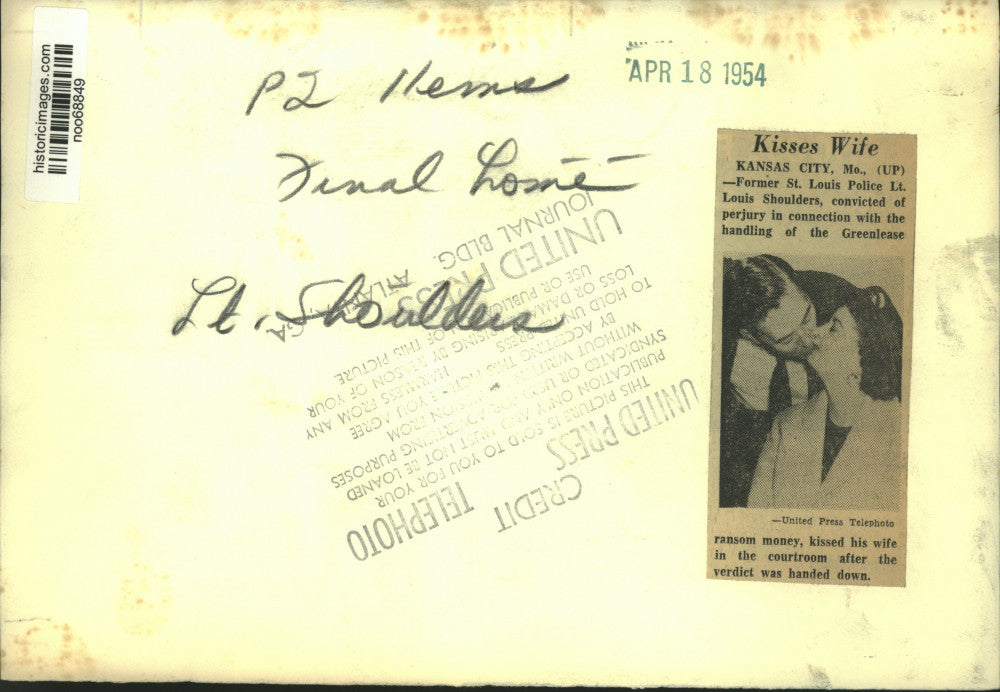 historicimages.com
noo68849
APR 18 1954
P2 Items
Final Home
Lt. Shoulders
Kisses Wife
KANSAS CITY, Mo., (UP)
—Former St. Louis Police Lt.
Louis Shoulders, convicted of
perjury in connection with the
handling of the Greenlease
—United Press Telephoto
ransom money, kissed his wife
in the courtroom after the
verdict was handed down.
CREDIT
UNITED PRESS TELEPHOTO
THIS PICTURE IS SOLD TO YOU FOR YOUR
PUBLICATION ONLY AND MUST NOT BE LOANED
SYNDICATED OR USED FOR ADVERTISING PURPOSES
WITHOUT WRITTEN
BY ACCEPTING THIS PICTURE YOU AGREE
TO HOLD UNITED PRESS HARMLESS FROM ANY
LOSS OR DAMAGE ARISING BY REASON OF YOUR
USE OR PUBLICATION OF THIS PICTURE
UNITED PRESS
JOURNAL BLDG. ATLANTA, GA